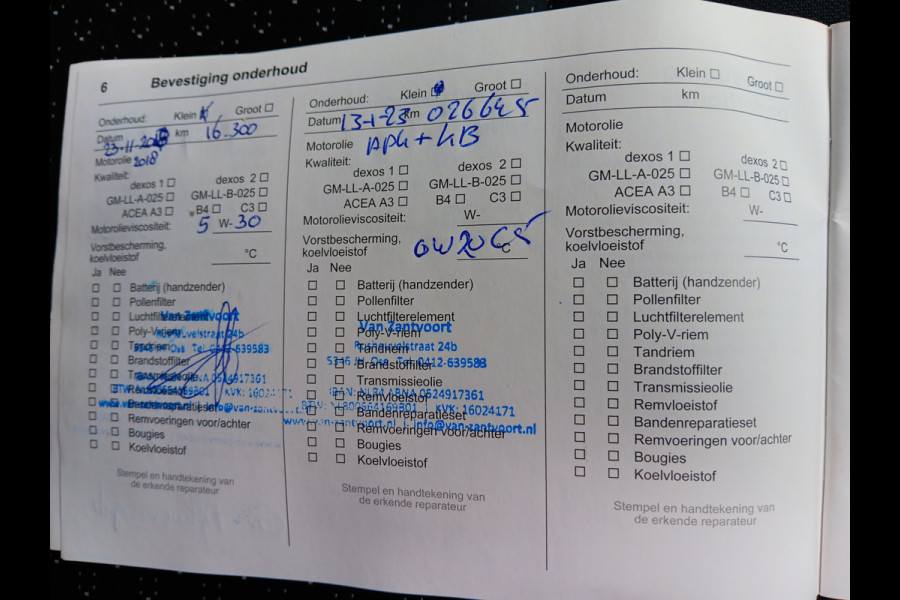 6 Bevestiging onderhoud
Onderhoud: Klein Groot
Datum 23-11-2018 km 16.300
2018
Motorolie
Kwaliteit:
dexos 1 dexos 2
GM-LL-A-025 GM-LL-B-025
ACEA A3 B4 C3
Motorolieviscositeit: 5 W-30
Vorstbescherming,
koelvloeistof °C
Ja Nee
Batterij (handzender)
Pollenfilter
Luchtfilterelement
Van Zantvoort
Poly-V-riem
straat 24b
Tandriem
Oss Tel: 0412-639583
Brandstoffilter
Transmissieolie
0524917361
Remvloeistof
KVK: 16024171
Bandenreparatieset
Remvoeringen voor/achter
Bougies
Koelvloeistof
Stempel en handtekening van
de erkende reparateur
Onderhoud: Klein Groot
Datum 13-1-23 km 026645
Motorolie
Kwaliteit:
dexos 1 dexos 2
GM-LL-A-025 GM-LL-B-025
ACEA A3 B4 C3
Motorolieviscositeit: W-
Vorstbescherming,
koelvloeistof °C
0W20
Ja Nee
Batterij (handzender)
Pollenfilter
Luchtfilterelement
Van Zantvoort
Poly-V-riem
straat 24b
Tandriem
5346 Oss Tel: 0412-639583
Brandstoffilter
Transmissieolie
0524917361
Remvloeistof
KVK: 16024171
Bandenreparatieset
www.van-zantvoort.nl | info@van-zantvoort.nl
Remvoeringen voor/achter
Bougies
Koelvloeistof
Stempel en handtekening van
de erkende reparateur
Onderhoud: Klein Groot
Datum km
Motorolie
Kwaliteit:
dexos 1 dexos 2
GM-LL-A-025 GM-LL-B-025
ACEA A3 B4 C3
Motorolieviscositeit: W-
Vorstbescherming,
koelvloeistof °C
Ja Nee
Batterij (handzender)
Pollenfilter
Luchtfilterelement
Poly-V-riem
Tandriem
Brandstoffilter
Transmissieolie
Remvloeistof
Bandenreparatieset
Remvoeringen voor/achter
Bougies
Koelvloeistof
Stempel en handtekening van
de erkende reparateur